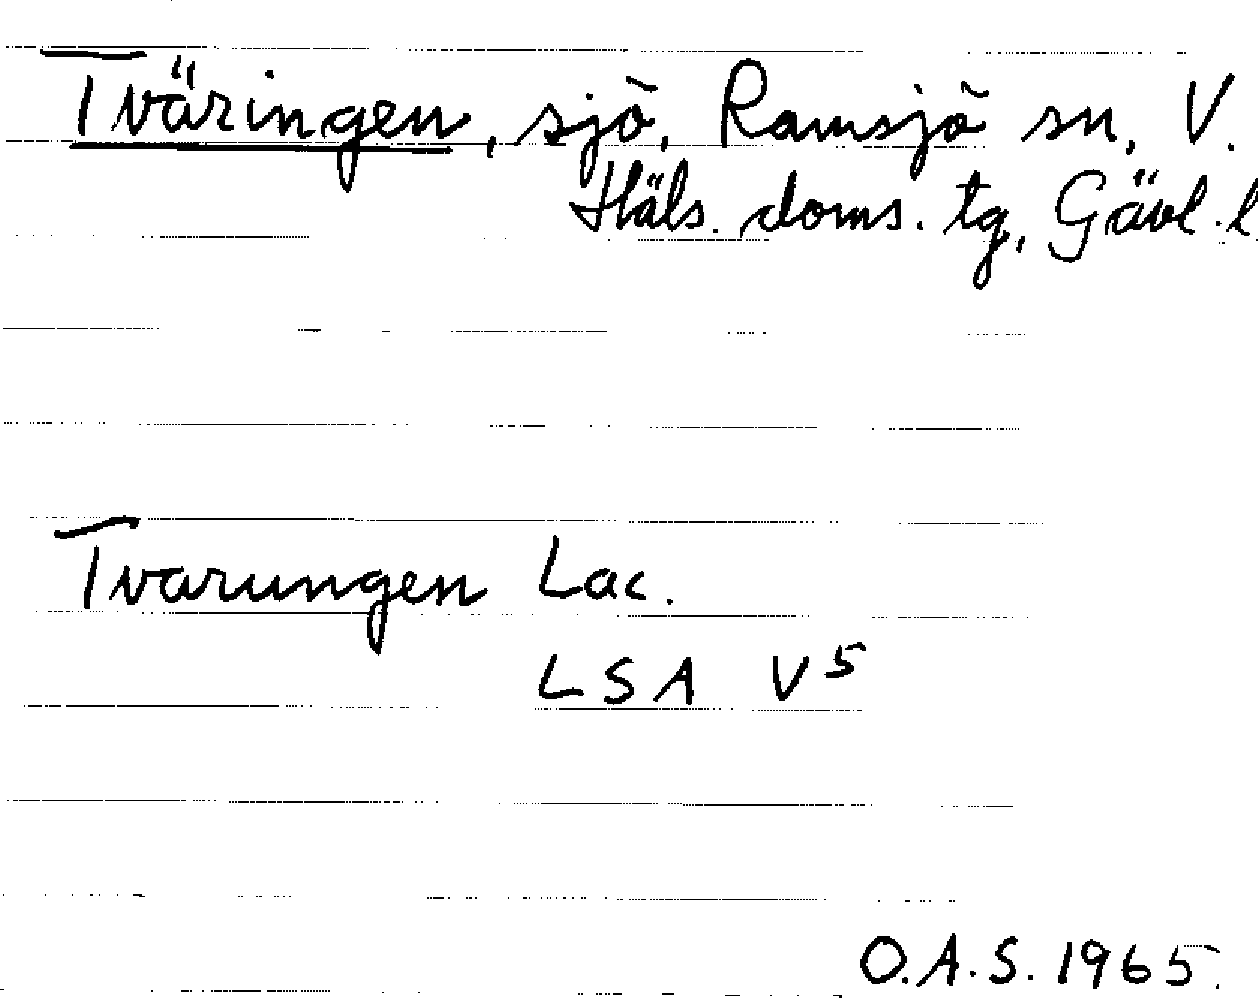 Tväringen, sjö, Ramsjö sn, V.
Häls. doms. tg, Gävl. l
Tvarungen Lac.
LSA V5
O.A.S. 1965.